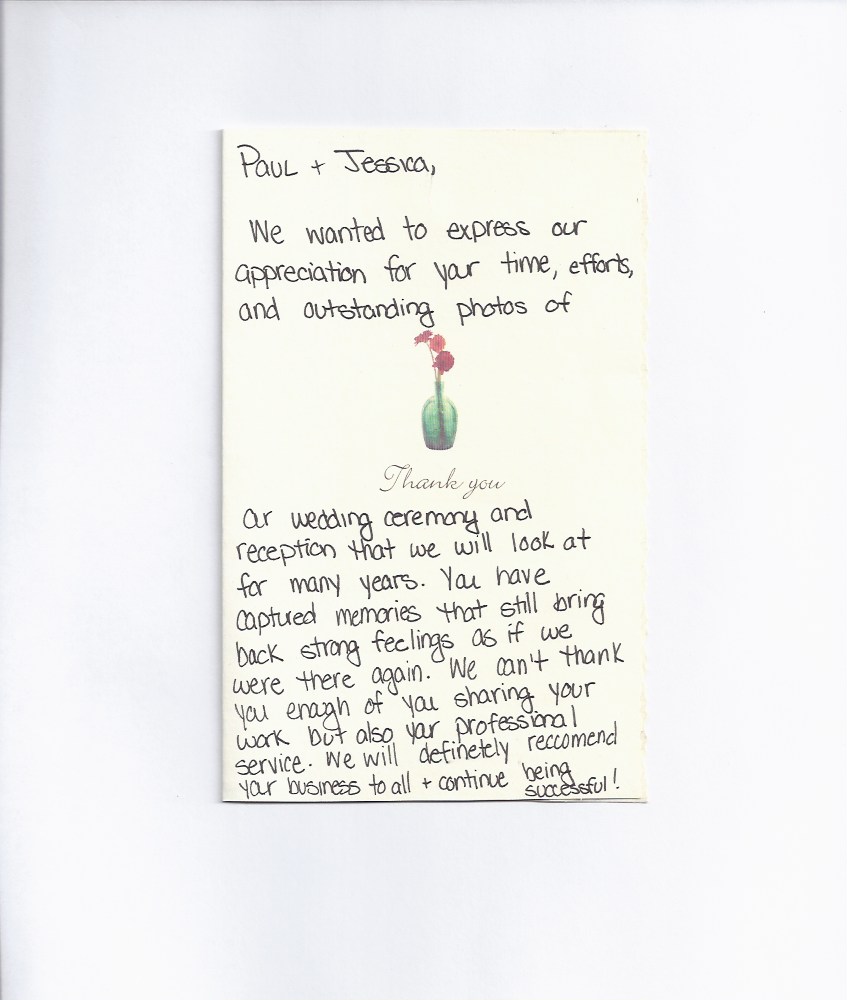 Paul + Jessica,
We wanted to express our
appreciation for your time, efforts,
and outstanding photos of
Thank you
Our wedding ceremony and
reception that we will look at
for many years. You have
captured memories that still bring
back strong feelings as if we
were there again. We can't thank
you enough of you sharing your
work but also your professional
service. We will definetely reccomend
your business to all + continue being
successful!